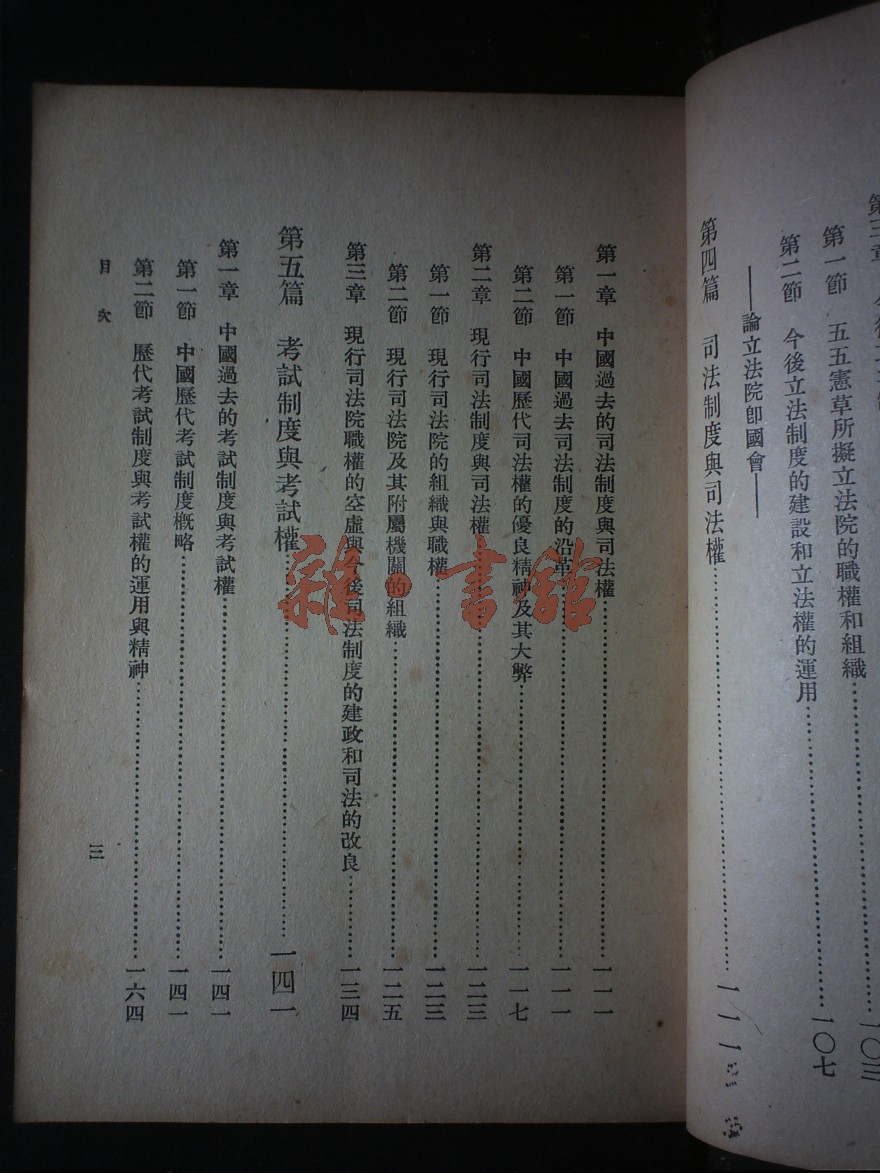 第一節　五五憲草所擬立法院的職權和組織………一〇三
第二節　今後立法制度的建設和立法權的運用………一〇七
——論立法院卽國會——
第四篇　司法制度與司法權………一一一
第一章　中國過去的司法制度與司法權………一一一
第一節　中國過去司法制度的沿革………一一一
第二節　中國歷代司法權的優良精神及其大弊………一一七
第二章　現行司法制度與司法權………一二三
第一節　現行司法院的組織與職權………一二三
第二節　現行司法院及其附屬機關的組織………一二五
第三章　現行司法院職權的空虛與今後司法制度的建政和司法的改良………一三四
第五篇　考試制度與考試權………一四一
第一章　中國過去的考試制度與考試權………一四一
第一節　中國歷代考試制度槪略………一四一
第二節　歷代考試制度與考試權的運用與精神………一六四
目次
三
雜·書館